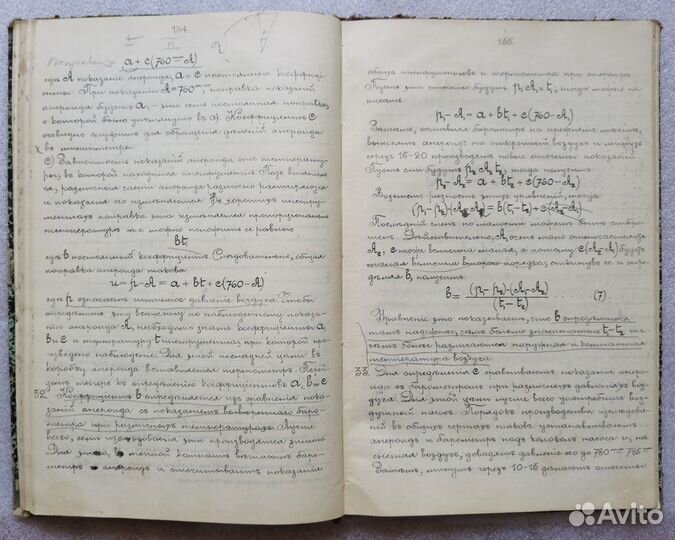 184.
Поправка
a + c(760ᵐᵐ – A)
гдѣ A показаніе анероида, a и c постоянные коэффиці-
енты. При показаніи A = 760ᵐᵐ, поправка показаній
анероида будетъ a, – это есть постоянная поправка,
о которой было упомянуто въ а). Коэффиціентъ c
очевидно служитъ для обращенія дѣленій анероида
въ миллиметры.
c) Зависимость показаній анероида отъ температу-
ры, въ которой находился инструментъ.
различныя части анероида различно расширяются
и показанія его измѣняются. Въ хорошихъ инстру-
ментахъ поправка эта измѣняется пропорціонально
температурѣ и можно положить ее равною
bt,
гдѣ b постоянный коэффиціентъ. Слѣдовательно, общая
поправка анероида такова:
u = p – A = a + bt + c(760 – A)
гдѣ p означаетъ истинное давленіе воздуха. Чтобы
опредѣлить эту величину по наблюденному показа-
нію анероида A, необходимо знать коэффиціенты a,
b и c и температуру t инструмента, при которой про-
изведено наблюденіе. Для этой послѣдней цѣли въ
коробку анероида вставляется термометръ. Перей-
демъ теперь къ опредѣленію коэффиціентовъ a, b и c
32. Коэффиціентъ b опредѣляется изъ сравненія пока-
заній анероида съ показаніемъ вывѣреннаго баро-
метра при различныхъ температурахъ. Лучше
всего, если изслѣдованія эти производятся зимою.
Для этого, въ теплой комнатѣ вѣшаютъ баро-
метръ и анероидъ и отсчитываютъ показанія
185.
обоихъ инструментовъ и термометра при анероидѣ.
Пусть эти отсчеты будутъ p₁, A₁ и t₁, тогда можно на-
писать
p₁ – A₁ = a + bt₁ + c(760 – A₁)
Затѣмъ, оставивъ барометръ на прежнемъ мѣстѣ,
выносятъ анероидъ на открытый воздухъ и минутъ
черезъ 15-20 производятъ новые отсчеты показаній.
Пусть они будутъ p₂, A₂, t₂, тогда получимъ
p₂ – A₂ = a + bt₂ + c(760 – A₂)
Возьмемъ разность этихъ уравненій, тогда
(p₁ – p₂) – (A₁ – A₂) = b(t₁ – t₂) + c(A₂ – A₁)
Послѣдній членъ по малости можетъ быть отбро-
шенъ. Дѣйствительно, A₁ очень мало отличается отъ
A₂, c тоже величина малая, а потому c(A₂ – A₁) будетъ
малая величина второго порядка; откинувъ ее и опре-
дѣляя b, получимъ
b = (p₁ – p₂) – (A₁ – A₂) / (t₁ – t₂) ······· (7)
Уравненіе это показываетъ, что b опредѣлится
тѣмъ надежнѣе, чѣмъ больше знаменатель t₁ – t₂, т.е.
чѣмъ больше различаются наружная и комнатная
температура воздуха.
33. Для опредѣленія c сравниваютъ показанія анеро-
ида съ барометромъ при различныхъ давленіяхъ воз-
духа. Для этой цѣли лучше всего употребить воз-
душный насосъ. Порядокъ производства изслѣдова-
ній въ общихъ чертахъ таковъ: устанавливаютъ
анероидъ и барометръ подъ колоколъ насоса и, на-
гнетая воздухъ, доводятъ давленіе его до 780ᵐᵐ – 785ᵐᵐ
Затѣмъ, минутъ черезъ 10-15 дѣлаютъ отсчеты
Avito